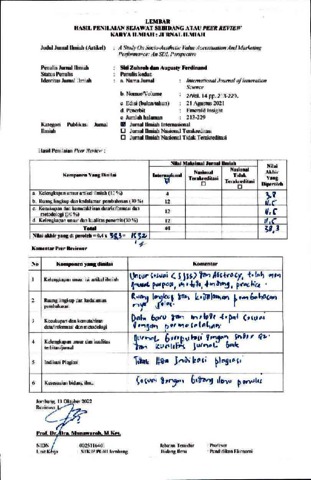 LEMBAR
HASIL PENILAIAN SEJAWAT SEBIDANG ATAU PEER REVIEW
KARYA ILMIAH : JURNAL ILMIAH
Judul Jurnal Ilmiah (Artikel) : A Study On Socio-Aesthetic Value Accentuation And Marketing
Performance: An SDL Perspective
Penulis Jurnal Ilmiah : Siti Zuhroh dan Augusty Ferdinand
Status Penulis : Penulis kedua
Identitas Jurnal Ilmiah : a. Nama Jurnal : International Journal of Innovation
Science
b. Nomor/Volume : 2/Vol. 14 pp. 213-229
c. Edisi (bulan/tahun) : 21 Agustus 2021
d. Penerbit : Emerald Insight
e. Jumlah halaman : 213-229
Kategori Publikasi Jurnal Ilmiah : Jurnal Ilmiah Internasional
Jurnal Ilmiah Nasional Terakreditasi
Jurnal Ilmiah Nasional Tidak Terakreditasi
Hasil Penilaian Peer Review :
Komponen Yang Dinilai
Nilai Maksimal Jurnal Ilmiah
Internasional
Nasional Terakreditasi
Nasional Tidak Terakreditasi
Nilai Akhir Yang Diperoleh
a. Kelengkapan unsur artikel ilmiah (10 %) 4 3,8
b. Ruang lingkup dan kedalaman pembahasan (30 %) 12 11,5
c. Kecukupan dan kemutakhiran data/informasi dan metodologi (30 %) 12 11,5
d. Kelengkapan unsur dan kualitas penerbit (30 %) 12 11,5
Total 40 38,3
Nilai akhir yang di peroleh = 0,4 x 38,3 = 15,32
Komentar Peer Reviewer
No Komponen yang dinilai Komentar
1 Kelengkapan unsur isi artikel ilmiah
2 Ruang lingkup dan kedalaman pembahasan Ruang lingkup dan kedalaman pembahasan
3 Kecukupan dan kemutakhiran data/informasi dan metodologi Data baru dan metode tepat sesuai
dengan permasalahan
4 Kelengkapan unsur dan kualitas terbitan/jurnal
dan kualitas jurnal baik
5 Indikasi Plagiasi Tidak ada indikasi plagiasi
6 Kesesuaian bidang ilmu Sesuai dengan bidang ilmu penulis
Jombang, 11 Oktober 2022
Reviewer 1
Prof. Dr. Dra. Munawaroh, M.Kes.
NIDN
Unit Kerja : STKIP PGRI Jombang
Jabatan Terakhir : Profesor
Bidang Ilmu : Pendidikan Ekonomi